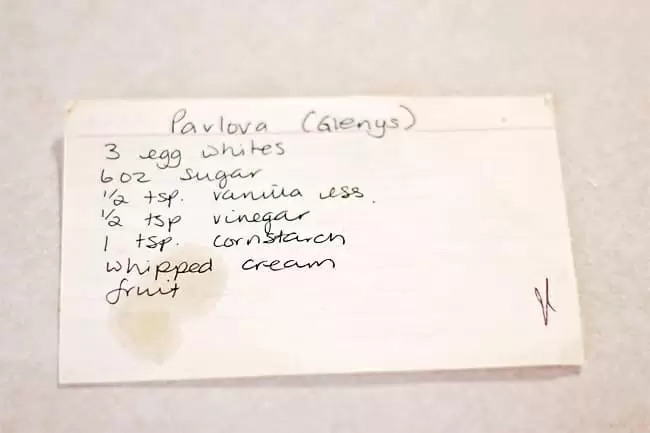 Pavlova (Glenys)
3 egg whites
6 oz sugar
1/2 tsp. vanilla ess.
1/2 tsp vinegar
1 tsp. cornstarch
whipped cream
fruit